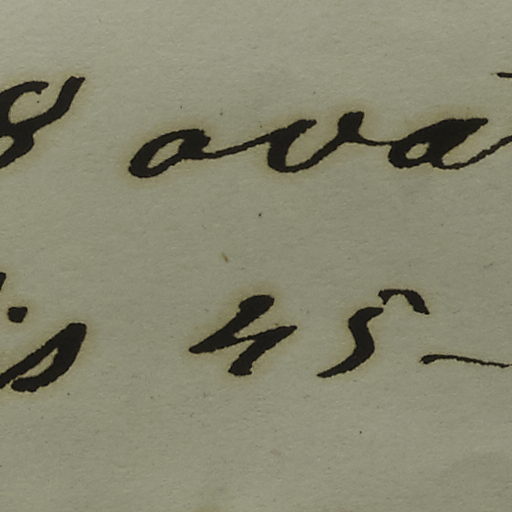 8 ova
is 45 –